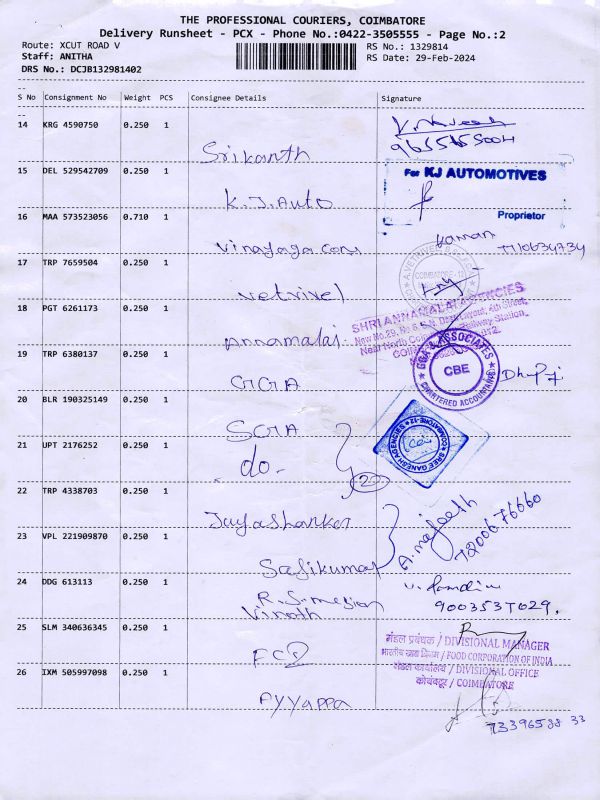 THE PROFESSIONAL COURIERS, COIMBATORE
Delivery Runsheet - PCX - Phone No.:0422-3505555 - Page No.:2
Route: XCUT ROAD V
RS No.: 1329814
Staff: ANITHA
RS Date: 29-Feb-2024
DRS No.: DCJB132981402
S No Consignment No Weight PCS Consignee Details Signature
14 KRG 4590750 0.250 1
Srikanth
15 DEL 529542709 0.250 1
For KJ AUTOMOTIVES
K.J.Auto
Proprietor
16 MAA 573523056 0.710 1
Vinayaga cons
17 TRP 7659504 0.250 1
COIMBATORE-12
Vetrivel
18 PGT 6261173 0.250 1
SHRI ANNAMALAI AGENCIES
Annamalai
19 TRP 6380137 0.250 1
GGA & ASSOCIATES
CBE
CHARTERED ACCOUNTANTS
GGA
20 BLR 190325149 0.250 1
SGA
SREE GANESH AGENCIES
COIMBATORE-12
21 UPT 2176252 0.250 1
-do-
2
22 TRP 4338703 0.250 1
Jayashanker
23 VPL 221909870 0.250 1
7200676660
Sasikumar
24 DDG 613113 0.250 1
Vinoth
25 SLM 340636345 0.250 1
मंडल प्रबंधक / DIVISIONAL MANAGER
भारतीय खाद्य निगम / FOOD CORPORATION OF INDIA
मंडल कार्यालय / DIVISIONAL OFFICE
कोयंबटूर / COIMBATORE
FCI
26 IXM 505997098 0.250 1
Ayyappa